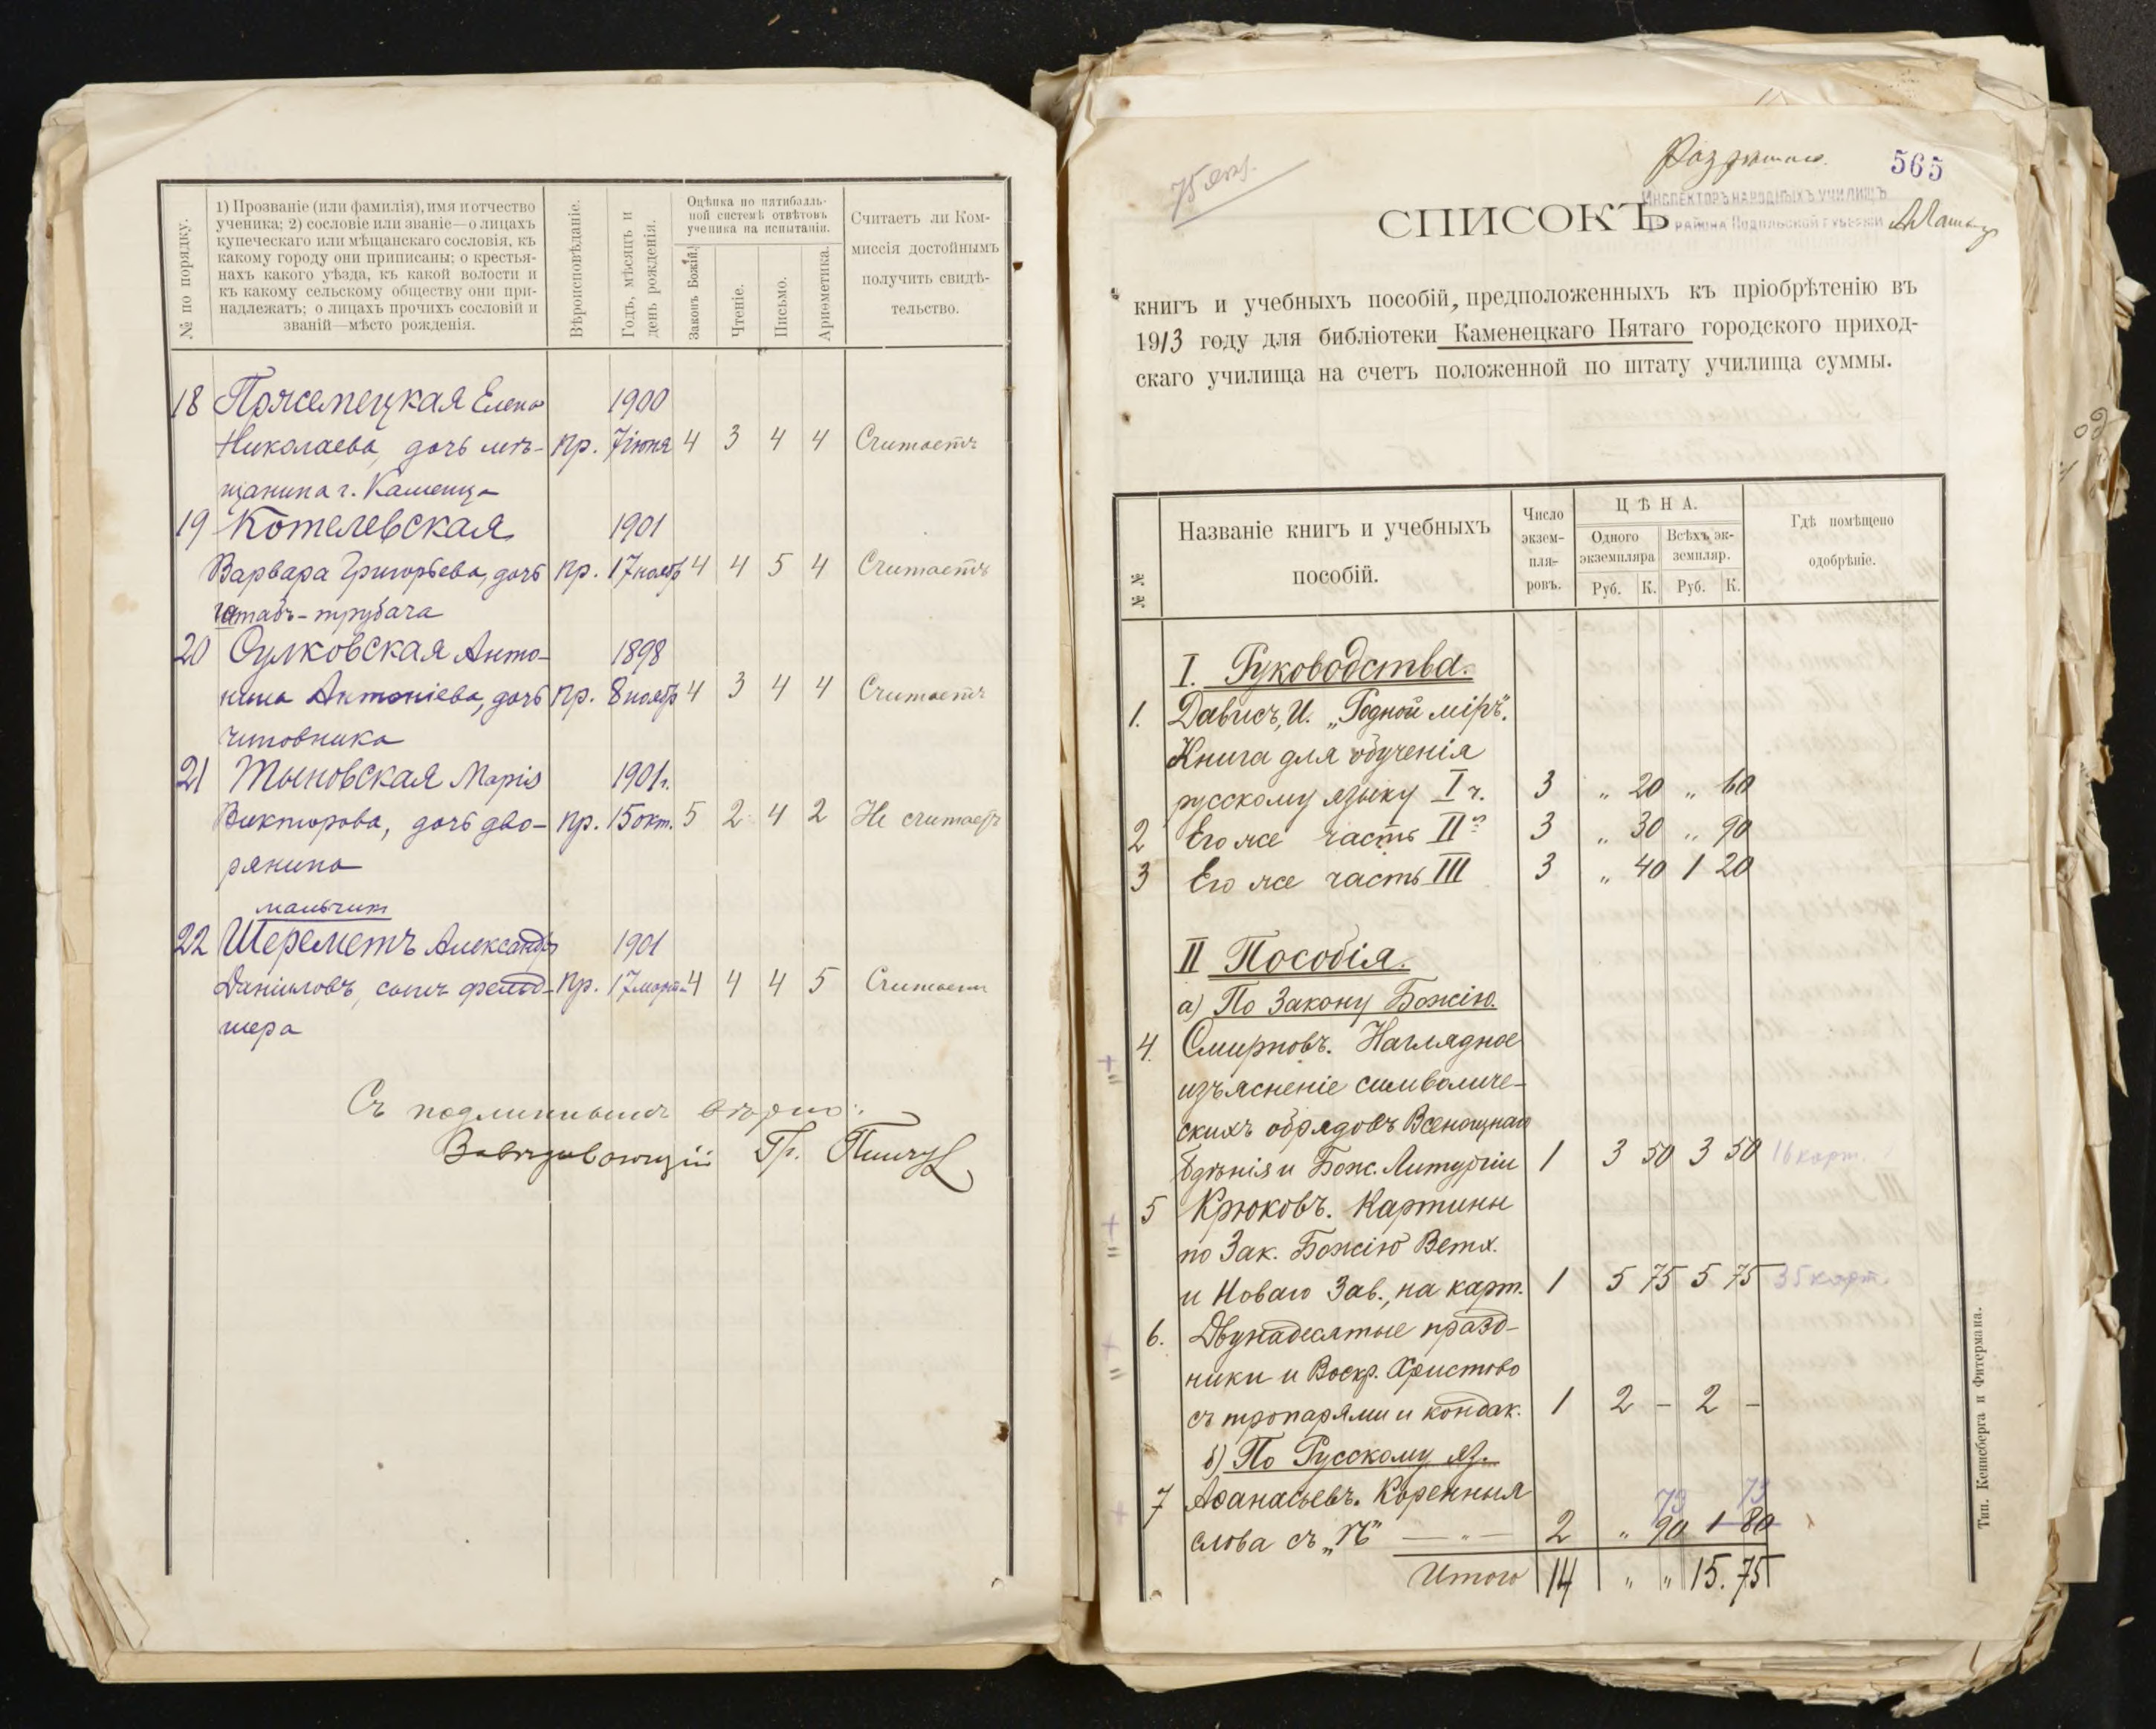 № по порядку.
1) Прозваніе (или фамилія), имя и отчество
ученика; 2) сословіе или званіе—о лицахъ
купеческаго или мѣщанскаго сословія, къ
какому городу они приписаны; о крестья-
нахъ какого уѣзда, къ какой волости и
къ какому сельскому обществу они при-
надлежатъ; о лицахъ прочихъ сословій и
званій—мѣсто рожденія.
Вѣроисповѣданіе.
Годъ, мѣсяцъ и
день рожденія.
Оцѣнка по пятибалль-
ной системѣ отвѣтовъ
ученика на испытаніи.
Законъ Божій.
Чтеніе.
Письмо.
Ариѳметика.
Считаетъ ли Ком-
миссія достойнымъ
получить свидѣ-
тельство.
18 Елена 1900
Николаева, дочь мѣ- пр. 7 іюня 4 3 4 4 Считаетъ
щанина г. Каменца
19 Котелевская 1901
Варвара Григорьева, дочь пр. 17 ноябр 4 4 5 4 Считаетъ
штабъ-трубача
20 Сулковская Анто- 1898
нина Антоніева, дочь пр. 8 ноябр 4 3 4 4 Считаетъ
чиновника
21 Тыновская Марія 1901 г.
Викторова, дочь дво- пр. 15 окт. 5 2 4 2 Не считаетъ
рянина
мальчик
22 Шереметъ Александръ 1901
Даніиловъ, сынъ фельд- пр. 17 марта 4 4 4 5 Считаетъ
шера
Съ подлиннымъ вѣрно:
Завѣдывающій Гр.
Разрѣшаю.
565
ИНСПЕКТОРЪ НАРОДНЫХЪ УЧИЛИЩЪ
РАЙОНА ПОДОЛЬСКОЙ ГУБЕРНІИ
СПИСОКЪ
книгъ и учебныхъ пособій, предположенныхъ къ пріобрѣтенію въ
1913 году для библіотеки Каменецкаго Пятаго городского приход-
скаго училища на счетъ положенной по штату училища суммы.
№№
Названіе книгъ и учебныхъ
пособій.
Число
экзем-
пля-
ровъ.
ЦѢНА.
Одного
экземпляра
Всѣхъ эк-
земпляр.
Руб. К. Руб. К.
Гдѣ помѣщено
одобрѣніе.
I. Руководства.
1. Дависъ, И. „Родной міръ".
Книга для обученія
русскому языку I ч. 3 „ 20 „ 60
2 Его же часть II 3 „ 30 „ 90
3 Его же часть III 3 „ 40 1 20
II Пособія.
а) По Закону Божію.
4. Смирновъ. Наглядное
изъясненіе символиче-
скихъ обрядовъ Всенощнаго
бдѣнія и Бож. Литургіи 1 3 50 3 50 16 карт.
5 Крюковъ. Картины
по Зак. Божію Ветх.
и Новаго Зав., на карт. 1 5 75 5 75 35 карт.
6. Двунадесятые празд-
ники и Воскр. Христово
съ тропарями и кондак. 1 2 - 2 -
б) По Русскому яз.
7 Аѳанасьевъ. Коренныя 73 73
слова съ „Ѣ" — „ — 2 „ 90 1 80
Итого 14 „ „ 15.75
Тип. Кенисберга и Фитермана.